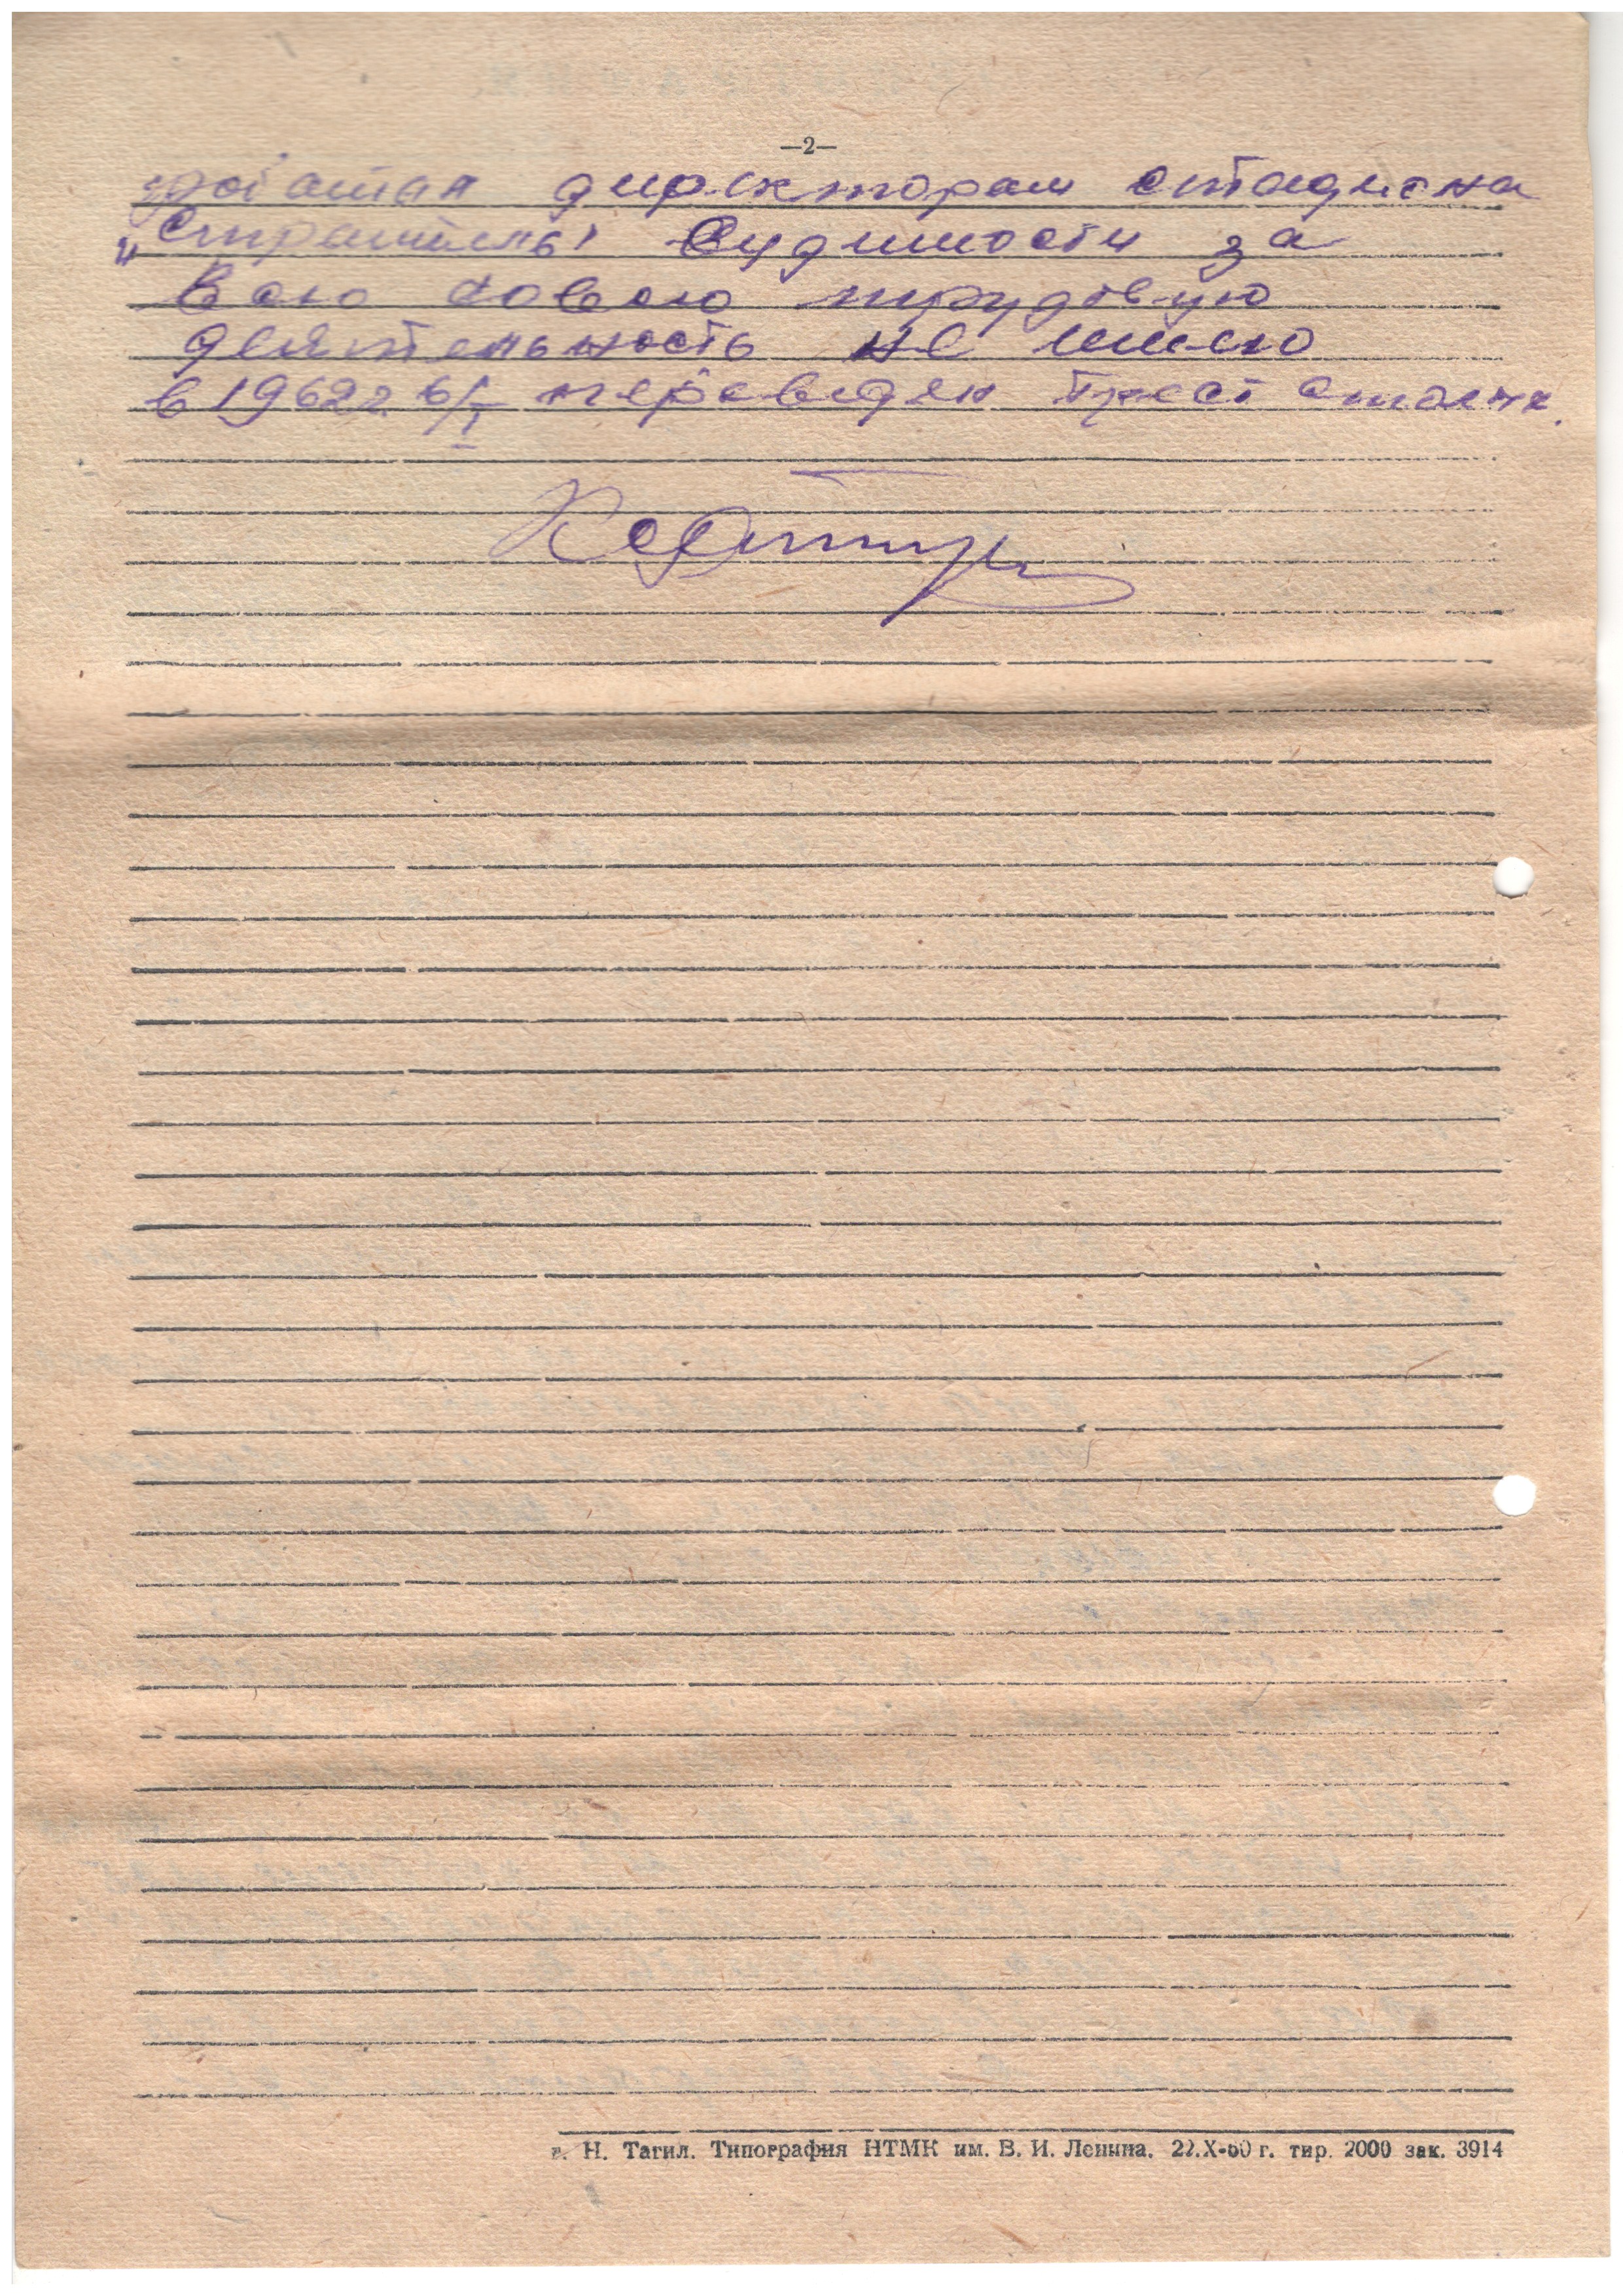 —2—
работал директором стадиона
„Строитель" Судимости за
Всю совою трудовую
деятельность не имею
в 1962 г. 6/I переведен трест
г. Н. Тагил. Типография НТМК им. В. И. Ленина. 22.X-60 г. тир. 2000 зак. 3914